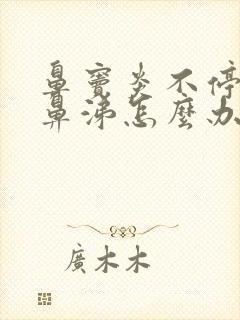 鼻竇炎不停
鼻涕怎麼办
廣木木